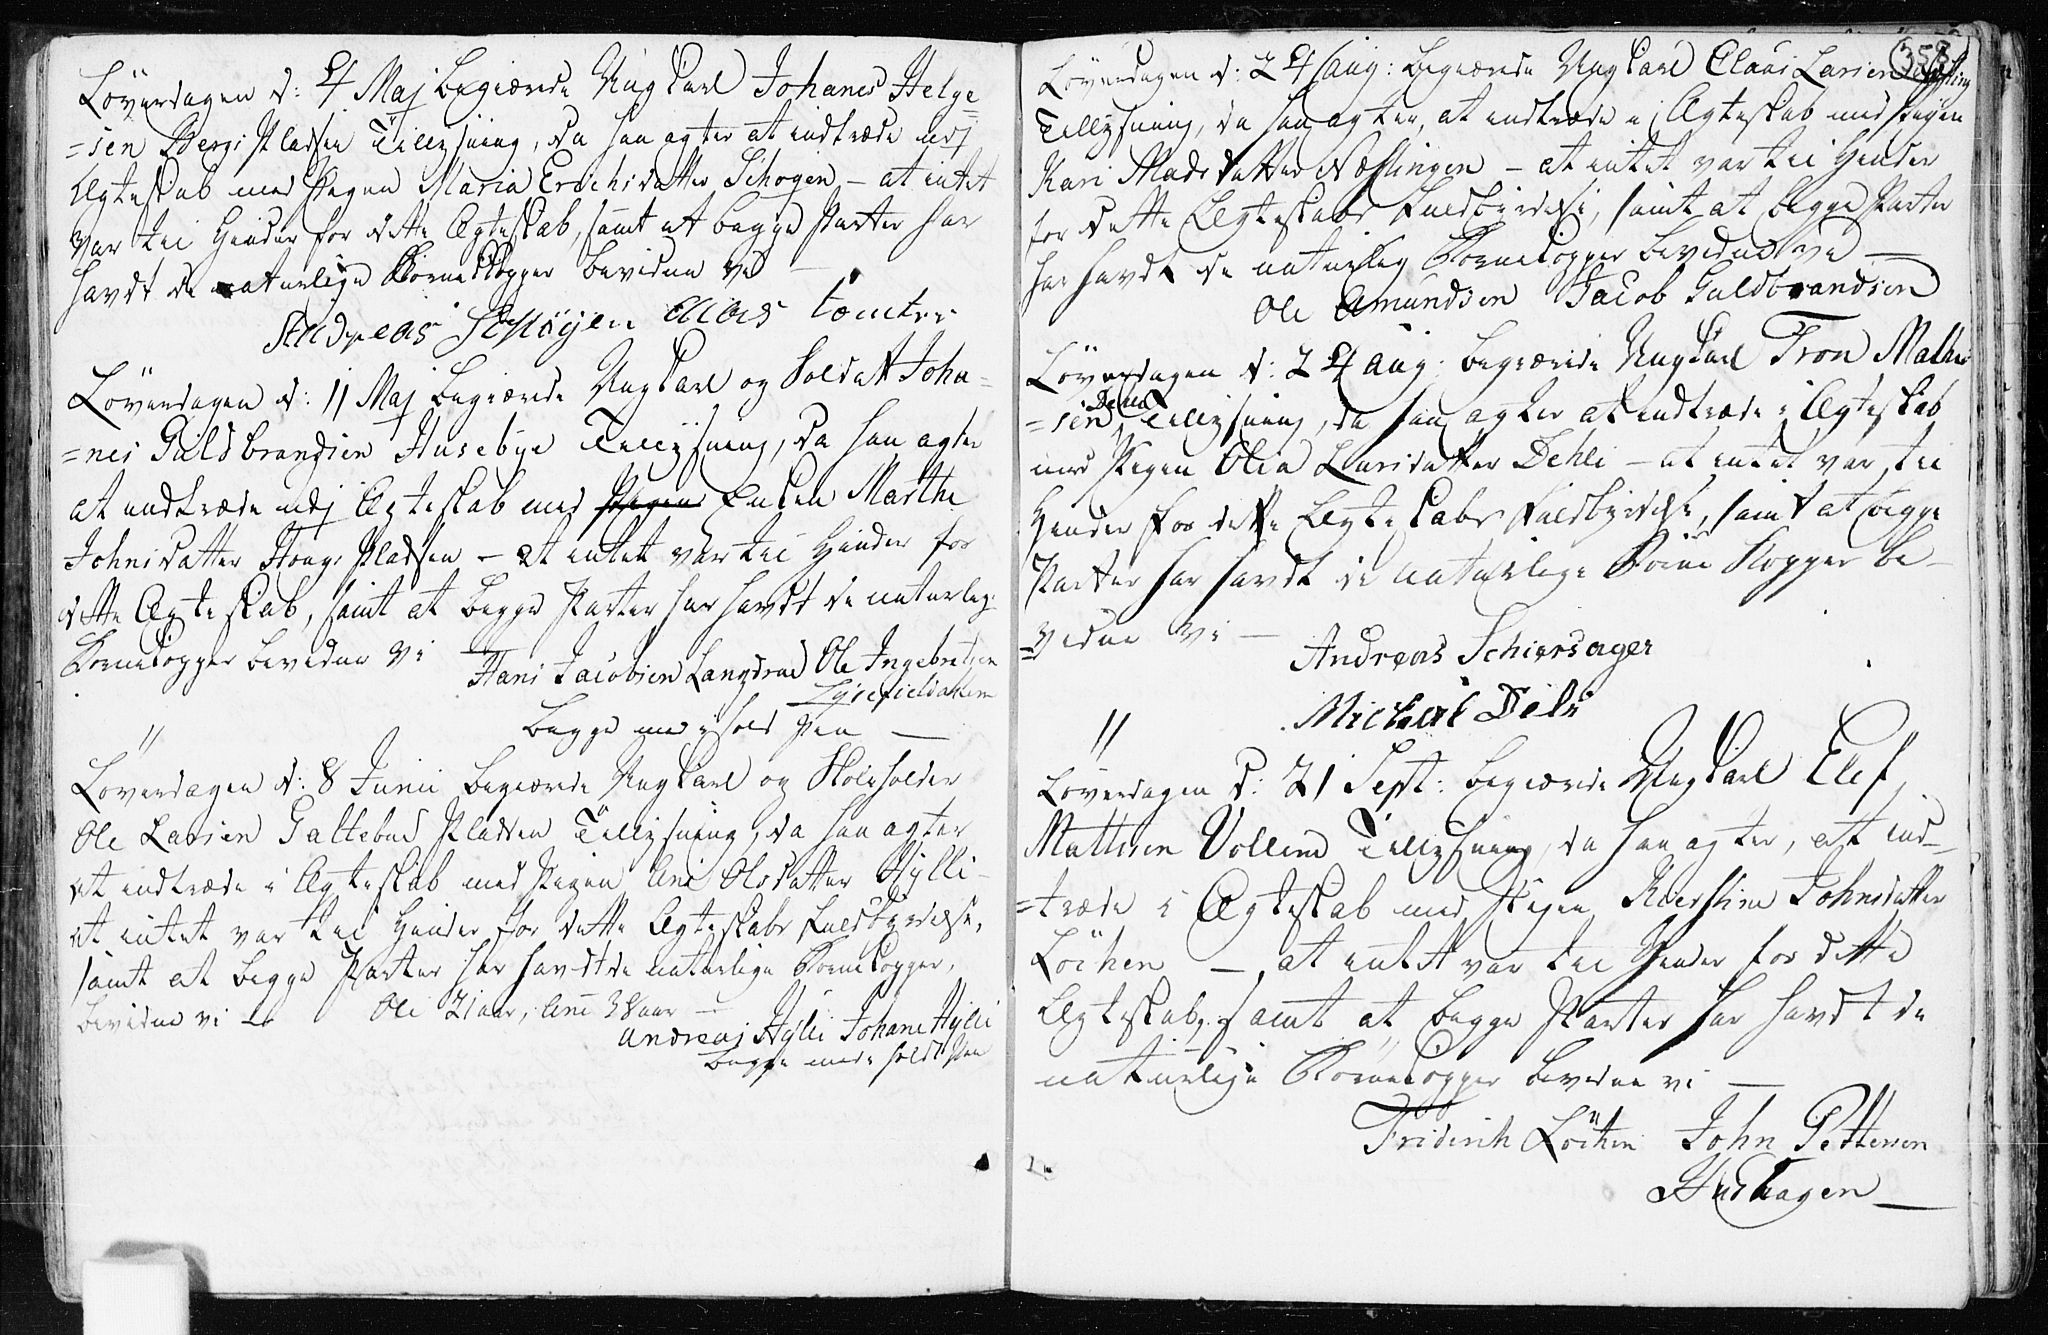 Löverdagen d: 4 Maj begiærede Ungkarl Johanes Helge=
=sen Bergs Pladsen Tillysning, da han agter at indtræde udj
Ægteskab med Pigen Maria Erichsdatter Schogen – at intet
var til Hinder for dette Ægteskab, samt at begge Parter har
havdt de naturlige Bornekopper bevidne vi –
Andreas Schöyen Elias tomter
Löverdagen d: 11 Maj begiærede Ungkarl og Soldat Joha=
=nes Guldbrandsen Husebye Tillysning, da han agter
at indtræde udj Ægteskab med Pigen Enken Marthe
Johnsdatter Hougs Pladsen – at intet var til Hinder for
dette Ægteskab, samt at begge Parter har havdt de naturlige
Bornekopper bevidne vi
Hans Jacobsen Langdrud Ole Ingebretsen
begge med ihold Pen –
Löverdagen d: 8 Junii begiærede Ungkarl og
Ole Larsen Galtebud Pladsen Tillysning, da han agter
at indtræde i Ægteskab med Pigen Ane Olsdatter Hylli –
at intet var til Hinder for dette Ægteskabs Fuldbyrdelse,
samt at begge Parter har havdt de naturlige Bornekopper,
bevidne vi – Ole 21 aar, Ane 38 aar –
Andreas Hylli Johane Hylli
begge med iholdt Pen
358
Löverdagen d: 24 Aug: begiærede Ungkarl Claus Larsen
Tillysning, da han agter, at indtræde i Ægteskab med Pigen
Kari Madsdatter Næslingen – at intet var til Hinder
for dette Ægteskabs Fuldbyrdelse, samt at begge Parter
har havdt de naturlig Bornekopper bevidne vi –
Ole Amundsen Jacob Guldbrandsen
Löverdagen d: 24 Aug: begiærede Ungkarl Tron Mathi
=sen Tillysning, da han agter at indtræde i Ægteskab
med Pigen Olia Larsdatter Dehli – at intet var til
Hinder for dette Ægteskabs Fuldbyrdelse, samt at begge
Parter har havdt de naturlige Borne Kopper be–
=vidne vi –
Andreas Schiersager
Michael Deli
Löverdagen d: 21 Sept: begiærede Ungkarl Elef
Mattisen Vollem Tillysning, da han agter, at ind–
=træde i Ægteskab med Pigen Kierstine Johnsdatter
Löchen – at intet var til Hinder for dette
Ægteskab, samt at begge Parter har havdt de
naturlige Bornekopper bevidne vi –
Friderich Löchen John Pettersen